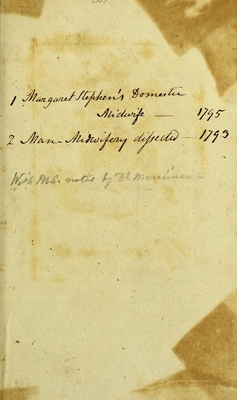 1 Margaret Stephen's Domestic
Midwife — 1795
2 Man-Midwifery dissected — 1793
With MS. notes by Dr Merriman